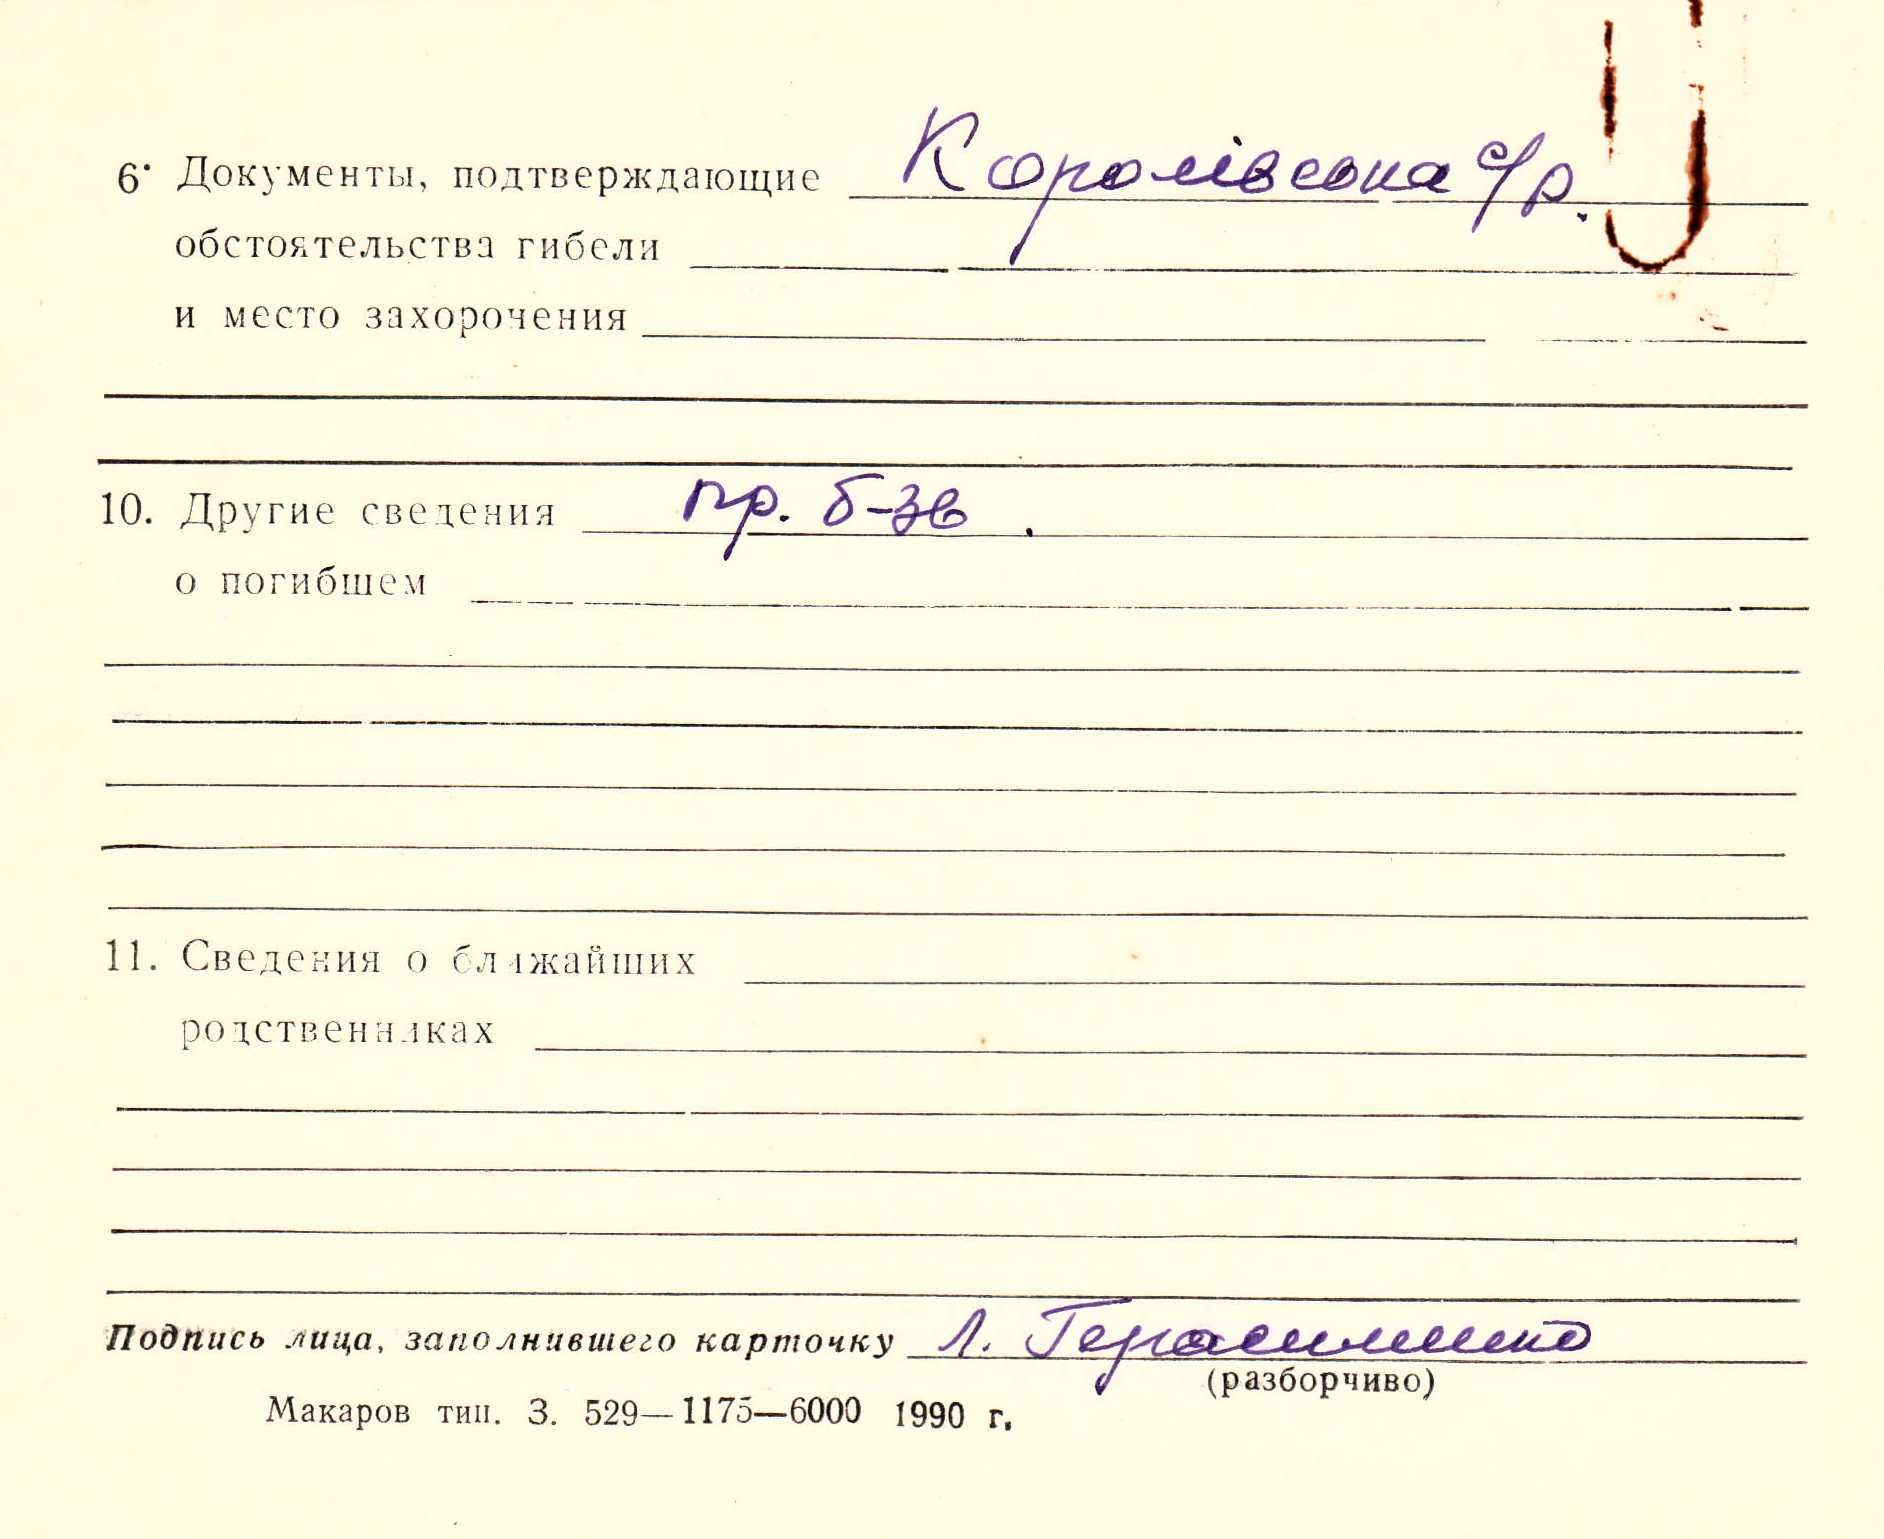 6. Документы, подтверждающие Королівська с/р.
обстоятельства гибели
и место захоронения
10. Другие сведения пр. б-зв.
о погибшем
11. Сведения о ближайших
родственниках
Подпись лица, заполнившего карточку Л. Герасименко
(разборчиво)
Макаров тип. З. 529—1175—6000 1990 г.